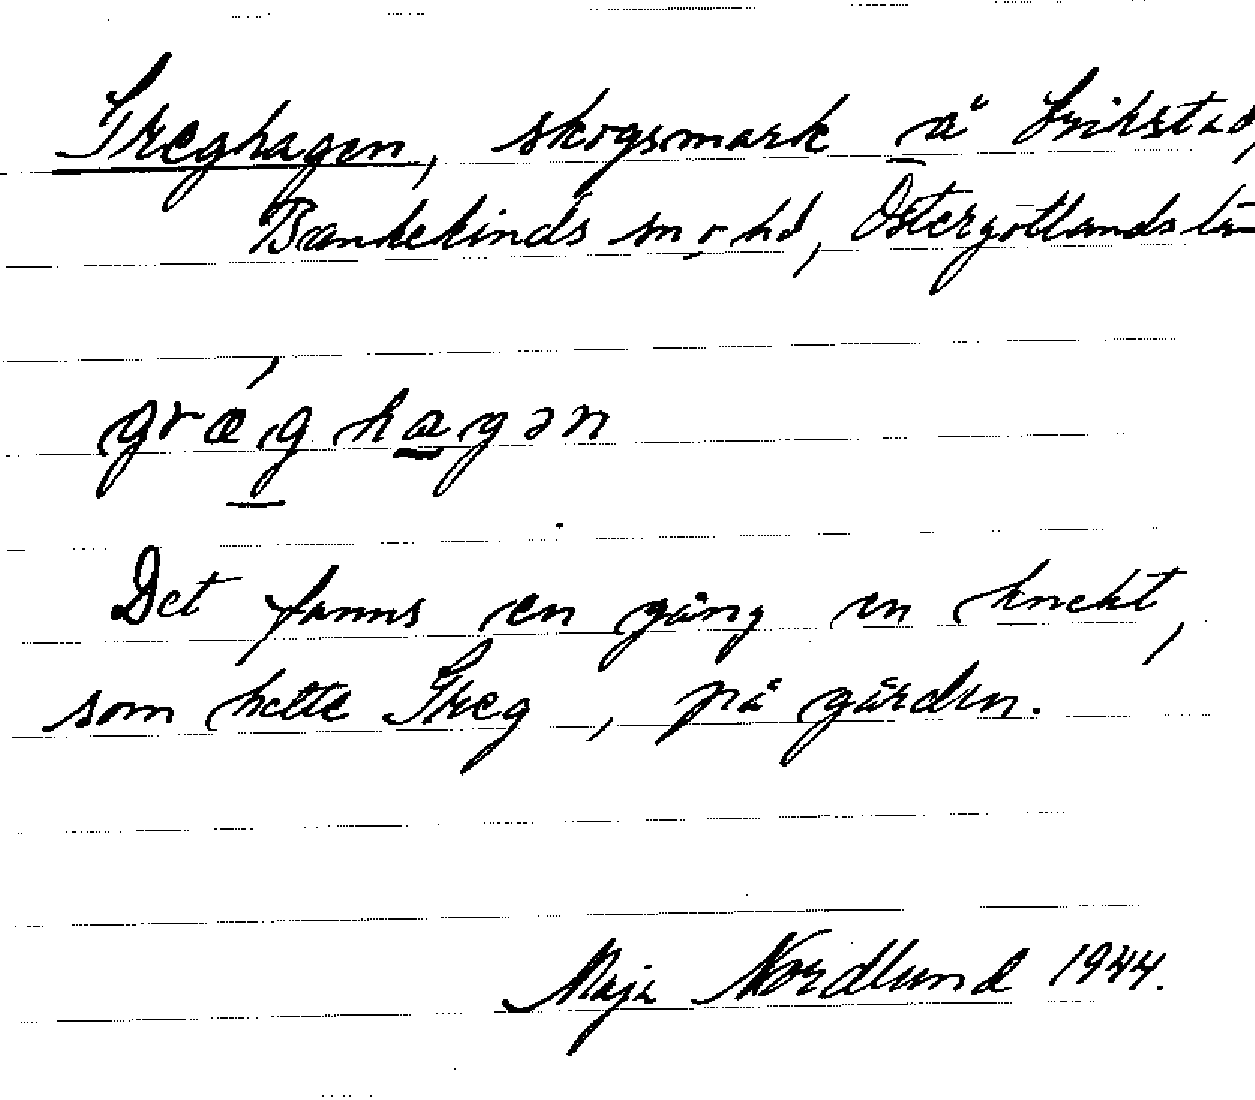 Greghagen, skogsmark å Erikstad,
Bankekinds sn o hd, Östergötlands län
græghagən
Det fanns en gång en knekt,
som hette Greg, på gården.
Maja Nordlund 1944.